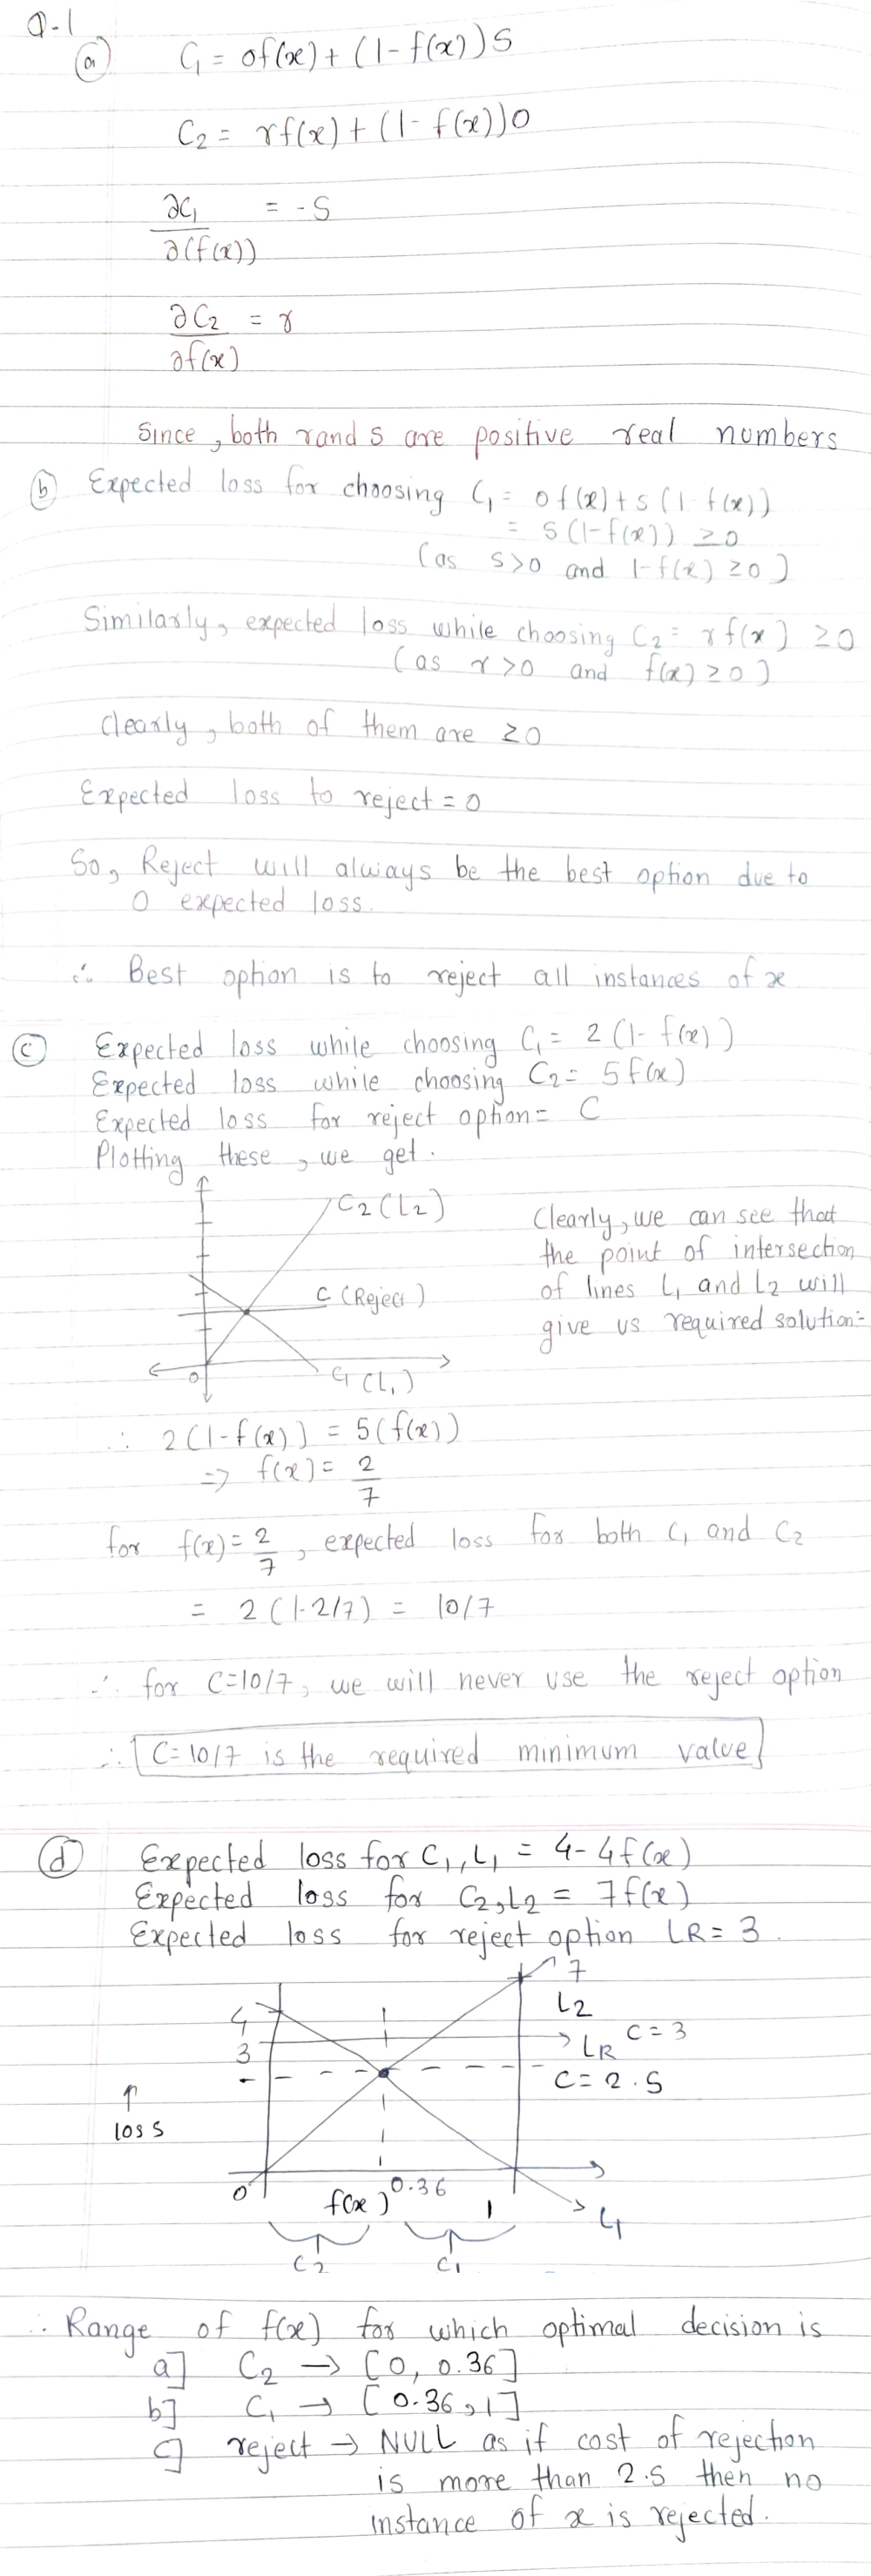 Q-1
(a) C₁ = 0f(x) + (1 - f(x))S
C₂ = rf(x) + (1 - f(x))0
∂C₁/∂(f(x)) = -S
∂C₂/∂f(x) = r
Since, both r and s are positive real numbers
(b) Expected loss for choosing C₁ = 0f(x) + s(1 - f(x))
= s(1-f(x)) ≥ 0
(as s>0 and 1-f(x) ≥ 0)
Similarly, expected loss while choosing C₂ = rf(x) ≥ 0
(as r>0 and f(x) ≥ 0)
Clearly, both of them are ≥0
Expected loss to reject = 0
So, Reject will always be the best option due to
0 expected loss.
∴ Best option is to reject all instances of x
(c) Expected loss while choosing C₁ = 2(1 - f(x))
Expected loss while choosing C₂ = 5f(x)
Expected loss for reject option = C
Plotting these, we get.
C₂(L₂)
C (Reject)
0
C₁(L₁)
Clearly, we can see that
the point of intersection
of lines L₁ and L₂ will
give us required solution:-
∴ 2(1-f(x)) = 5(f(x))
=> f(x) = 2/7
for f(x) = 2/7, expected loss for both C₁ and C₂
= 2(1-2/7) = 10/7
∴ for C=10/7, we will never use the reject option
∴ C=10/7 is the required minimum value
(d) Expected loss for C₁, L₁ = 4-4f(x)
Expected loss for C₂, L₂ = 7f(x)
Expected loss for reject option LR = 3.
7
4
L₂
3
LR C=3
C=2.5
↑
loss
0
f(x)
0.36
1
L₁
C₂
C₁
∴ Range of f(x) for which optimal decision is
a] C₂ → [0, 0.36]
b] C₁ → [0.36, 1]
c] reject → NULL as if cost of rejection
is more than 2.5 then no
instance of x is rejected.